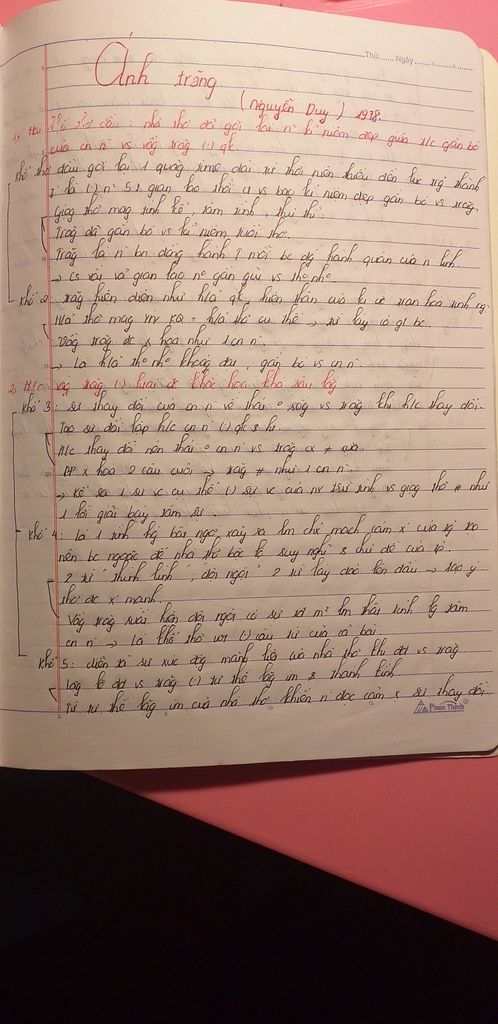 Thứ........ Ngày........
Ánh trăng
(Nguyễn Duy) 1978.
khổ thơ đầu: nhà thơ đã gợi lại n kỉ niệm đẹp giữa h/c gắn bó
của cn n vs vầg trăg () qk.
Khổ thơ đầu gợi lại 1 quãg time dài từ thời niên thiếu đến lúc trg thành
là () n 5 gian lao thời vs bao kỉ niệm đẹp gắn bó vs trăg.
Giọg thơ mag tính kể, tâm tình, thủ thỉ.
Trăg đã gắn bó vs kỉ niệm tuổi thơ.
Trăg là n bn đồng hành mỗi bc đg hành quân của n lính
→ cs vất vả gian lao nº gần gũi vs thº nhº
Khổ 2: trăg hiện diện như h/ả qk, hiện thân của kí ức chan hòa tình ng.
H/ả thơ mag + h/ả thơ cụ thể → từ láy
Vầg trăg đc x hóa như 1 cn n.
→ là h/ả thº nhº khoág đạt, gắn bó vs cn n.
2, vầg trăg () h.tại đc khắc họa khá sâu lắg
Khổ 3: sự thay đổi của cn n về thái º sốg vs trăg khi h/c thay đổi.
Tạo sự đối lập h/c cn n () qk & h.
H/c thay đổi nên thái º cn n vs trăg cx ≠ xưa
BP x hóa 2 câu cuối → trăg # như 1 cn n.
→ Kể ra 1 sự vc cụ thể () sự vc của nv trữ tình vs giọg thơ # như
1 lời giãi bày tâm sự.
Khổ 4: là 1 tình hg bất ngờ xảy ra lm chx mạch cảm x' của tg tạo
nên bc ngoặc để nhà thơ bộc lộ suy nghĩ & chủ đề của tp.
2 từ "thình lình", "đột ngột" 2 từ láy đảo lên đầu → tạo ý
thơ đc x' mạnh.
Vầg trăg xuất hiện đột ngột có sự lm thái tình lg tâm
cn n → là khổ thơ () cấu tứ của cả bài
Khổ 5: diễn tả sự xúc độg mãnh liệt của nhà thơ khi đd vs trăg
lặg lẽ đd vs trăg () tư thế lặg im & thành kính
Từ tư thế lặg im của nhà thơ khiến n đọc cảm x sự thay đổi
Phúc Thịnh